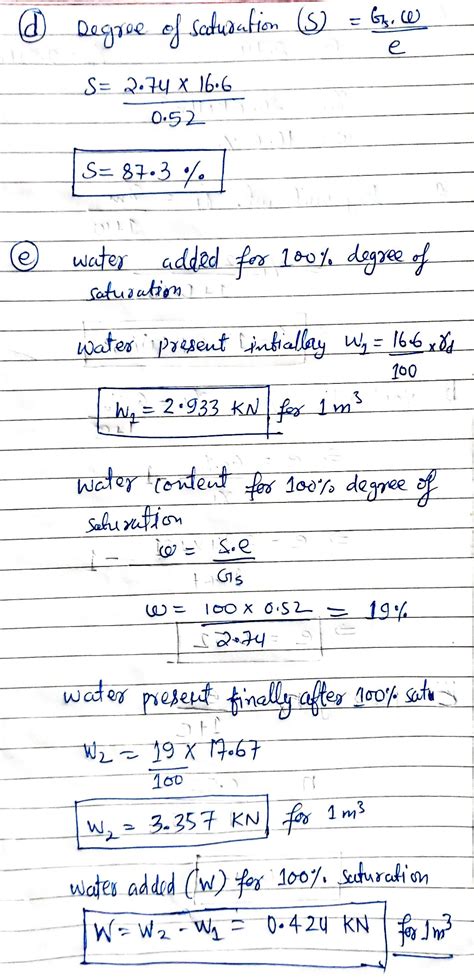 (d) Degree of saturation (S) = Gs.ω / e
S = 2.74 × 16.6 / 0.52
S = 87.3 %
(e) water added for 100% degree of
saturation
water present intiallay W1 = 16.6 / 100 × γd
W1 = 2.933 KN for 1 m³
water content for 100% degree of
saturation
ω = S.e / Gs
ω = 100 × 0.52 / 2.74 = 19%
water present finally after 100% satu
W2 = 19 / 100 × 17.67
W2 = 3.357 KN for 1 m³
water added (W) for 100% saturation
W = W2 - W1 = 0.424 KN for 1m³